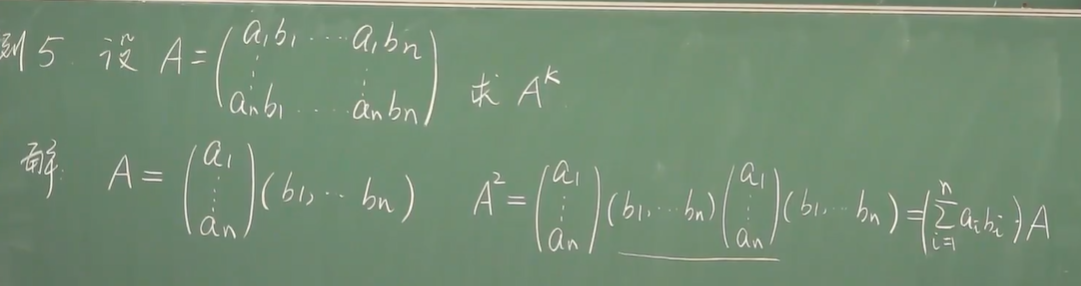 例5. 设 A = \begin{pmatrix} a_1b_1 & \cdots & a_1b_n \\ \vdots & & \vdots \\ a_nb_1 & \cdots & a_nb_n \end{pmatrix} 求 A^k
解: A = \begin{pmatrix} a_1 \\ \vdots \\ a_n \end{pmatrix} (b_1, \cdots b_n) A^2 = \begin{pmatrix} a_1 \\ \vdots \\ a_n \end{pmatrix} (b_1, \cdots b_n) \begin{pmatrix} a_1 \\ \vdots \\ a_n \end{pmatrix} (b_1, \cdots b_n) = \left( \sum_{i=1}^{n} a_i b_i \right) A